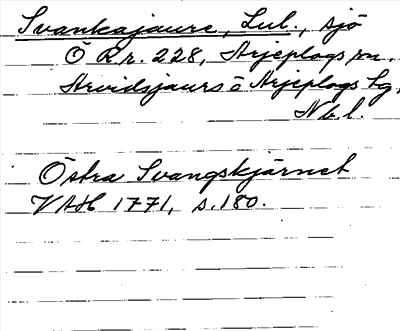 Svankajaure, Lul., sjö
Ö R.r. 228, Arjeplogs sn.
Arvidsjaurs o Arjeplogs tg,
Nbl.
Östra Svangskjärnet
VAH 1771, s. 180.